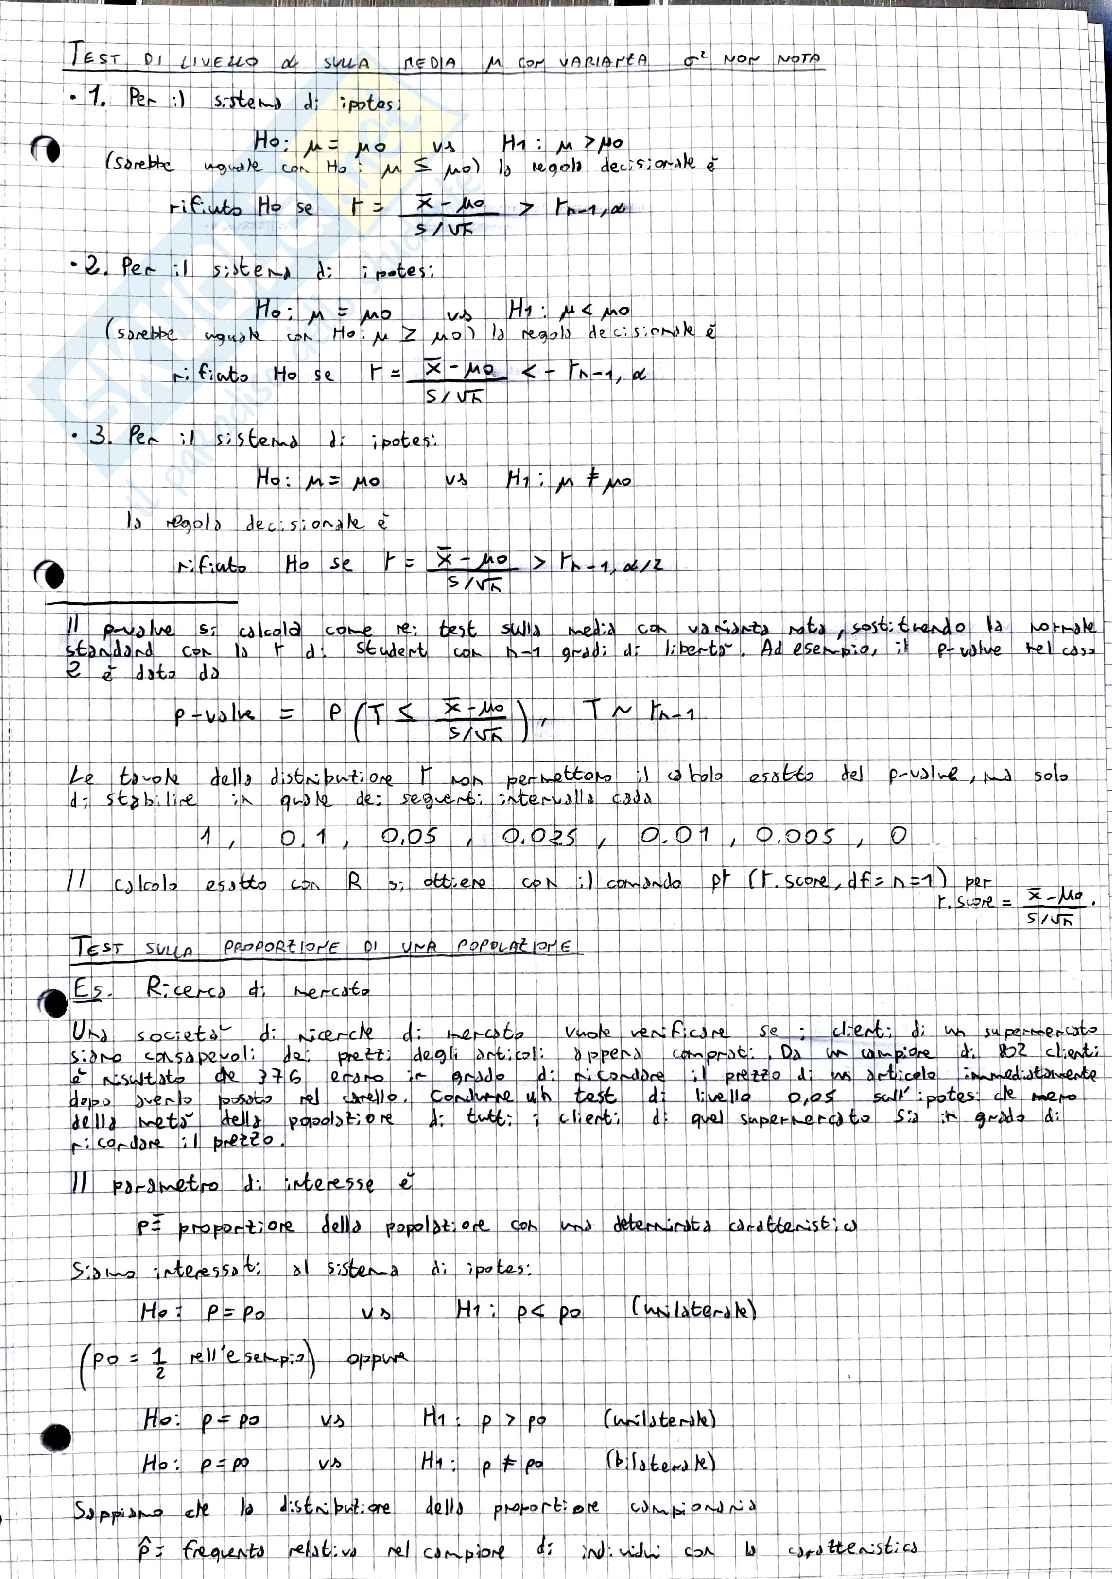 TEST DI LIVELLO α SULLA MEDIA μ CON VARIANZA σ² NON NOTA
• 1. Per il sistema di ipotesi
H0: μ = μ0 vs H1: μ > μ0
(sarebbe uguale con H0: μ ≤ μ0) la regola decisionale è
rifiuto H0 se t = (x̄ - μ0)/(s/√n) > tn-1,α
• 2. Per il sistema di ipotesi
H0: μ = μ0 vs H1: μ < μ0
(sarebbe uguale con H0: μ ≥ μ0) la regola decisionale è
rifiuto H0 se t = (x̄ - μ0)/(s/√n) < - tn-1,α
• 3. Per il sistema di ipotesi
H0: μ = μ0 vs H1: μ ≠ μ0
la regola decisionale è
rifiuto H0 se t = (x̄ - μ0)/(s/√n) > tn-1,α/2
Il p-value si calcola come nei test sulla media con varianza nota, sostituendo la normale
standard con la t di student con n-1 gradi di libertà. Ad esempio, il p-value nel caso
2 è dato da
p-value = P(T ≤ (x̄ - μ0)/(s/√n)), T ~ tn-1
Le tavole della distribuzione t non permettono il calcolo esatto del p-value, ma solo
di stabilire in quale dei seguenti intervalli cada
1, 0.1, 0.05, 0.025, 0.01, 0.005, 0
Il calcolo esatto con R si ottiene con il comando pt (t.score, df=n=1) per
t.score = (x̄ - μ0)/(s/√n).
TEST SULLA PROPORZIONE DI UNA POPOLAZIONE
Es. Ricerca di mercato
Una società di ricerche di mercato vuole verificare se i clienti di un supermercato
siano consapevoli dei prezzi degli articoli appena comprati. Da un campione di 802 clienti
è risultato che 376 erano in grado di ricordare il prezzo di un articolo immediatamente
dopo averlo posato nel carello. Condurre un test di livello 0,05 sull'ipotesi che meno
della metà della popolazione di tutti i clienti di quel supermercato sia in grado di
ricordare il prezzo.
Il parametro di interesse è
p= proporzione della popolazione con una determinata caratteristica
Siamo interessati al sistema di ipotesi
H0: p = p0 vs H1: p < p0 (unilaterale)
(p0 = 1/2 nell'esempio) oppure
H0: p = p0 vs H1: p > p0 (unilaterale)
H0: p = p0 vs H1: p ≠ p0 (bilaterale)
Sappiamo che la distribuzione della proporzione campionaria
p̂ = frequenza relativa nel campione di individui con la caratteristica